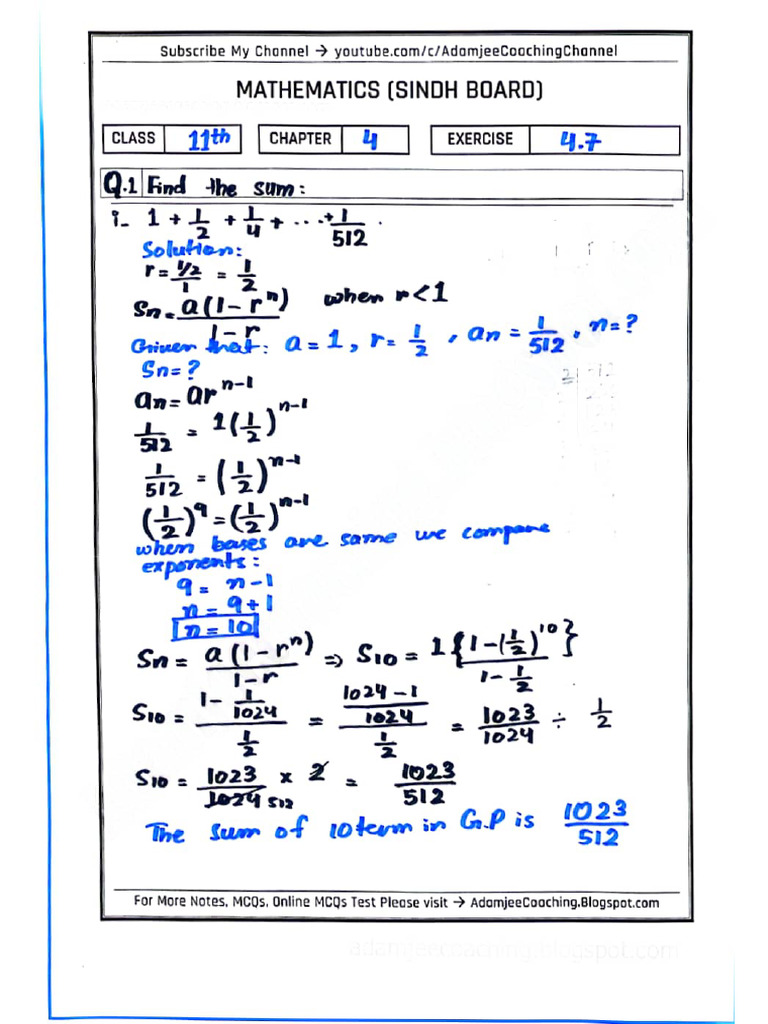 Subscribe My Channel → youtube.com/c/AdamjeeCoachingChannel
MATHEMATICS (SINDH BOARD)
CLASS 11th CHAPTER 4 EXERCISE 4.7
Q.1 Find the sum:
i- 1 + 1/2 + 1/4 + ... + 1/512 .
Solution:
r = (1/2)/1 = 1/2
Sn = a(1-r^n)/(1-r) when r<1
Given that: a = 1, r = 1/2, an = 1/512, n = ?
Sn = ?
an = ar^(n-1)
1/512 = 1(1/2)^(n-1)
1/512 = (1/2)^(n-1)
(1/2)^9 = (1/2)^(n-1)
when bases are same we compare
exponents:
9 = n-1
n = 9+1
n = 10
Sn = a(1-r^n)/(1-r) => S10 = 1{1-(1/2)^10}/(1-1/2)
S10 = (1- 1/1024)/(1/2) = ((1024-1)/1024)/(1/2) = 1023/1024 ÷ 1/2
S10 = 1023/1024 512 x 2 = 1023/512
The sum of 10 term in G.P is 1023/512
For More Notes, MCQs, Online MCQs Test Please visit → AdamjeeCoaching.Blogspot.com
adamjeecoaching.blogspot.com